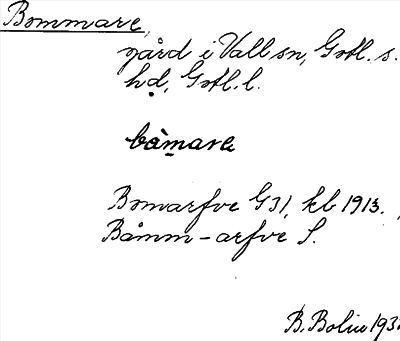 Bommare,
gård i Vall sn, Gotl. s.
hd, Gotl. l.
bòmare
Bomarfve G31, kb 1913.
Båmm-arfve S.
B. Bolin 193